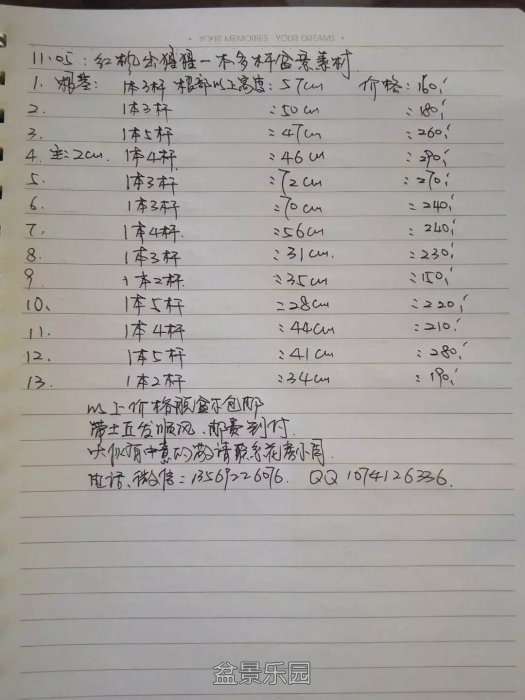 YOUR MEMORIES · YOUR DREAMS
11.05: 红枫出猩猩一本多杆盆景素材
1. 根基: 1本3杆 根部以上高度: 57cm 价格: 160,
2. 1本3杆 :50cm :180,
3. 1本5杆 :47cm :260,
4. 主:2cm 1本4杆 :46cm :290,
5. 1本3杆 :72cm :270,
6. 1本3杆 :70cm :240,
7. 1本4杆 :56cm :240,
8. 1本3杆 :31cm :230,
9. 1本2杆 :35cm :150,
10、 1本5杆 :28cm :220,
11. 1本4杆 :44cm :210,
12. 1本5杆 :41cm :280,
13. 1本2杆 :34cm :190,
以上价格不包邮
带土直发顺风、邮费到付.
中意的请联系花房小周
电话、微信: 13569226076. QQ 1074126336.
盆景乐园